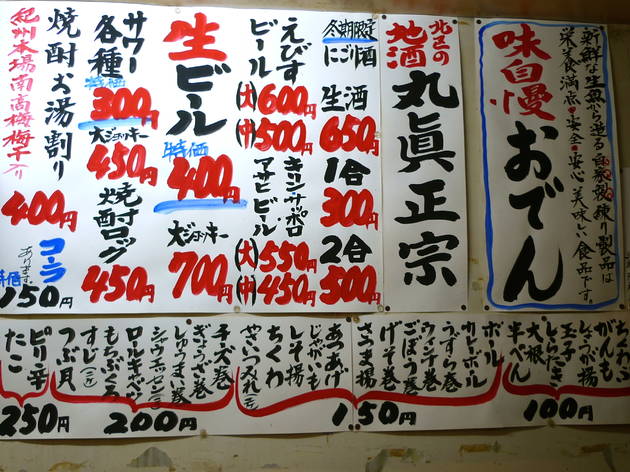 新鮮な生魚から造る自家製練り製品は
栄養満点・安全・安心 美味しい食品です。
味自慢
おでん
北区の
地酒
丸眞正宗
冬期限定
にごり酒
生酒
650円
1合
300円
2合
500円
えびす
ビール
(大)600円
(中)500円
キリン・サッポロ
アサヒビール
(大)550円
(中)450円
生ビール
特価
400円
大ジョッキー
700円
サワー
各種
特価
300円
大ジョッキー
450円
焼酎ロック
450円
焼酎お湯割り
紀州本場南高梅梅干入り
400円
コーラ
あります。
特価
150円
ちくわぶ
がんも
しょうが揚
玉子
しらたき
大根
半ぺん
100円
ボール
カレーボール
うずら巻
ウインナ巻
ごぼう巻
げそ巻
さつま揚
あつあげ
じゃがいも
しそ揚
ちくわ
やさいつみれ(二ケ)
150円
チーズ巻
ぎょうざ巻
しゅうまい巻
シャウエッセン(二ケ)
ロールキャベツ
もちぶくろ
すじ(二ケ)
つぶ貝
200円
ピリ辛
たこ
250円